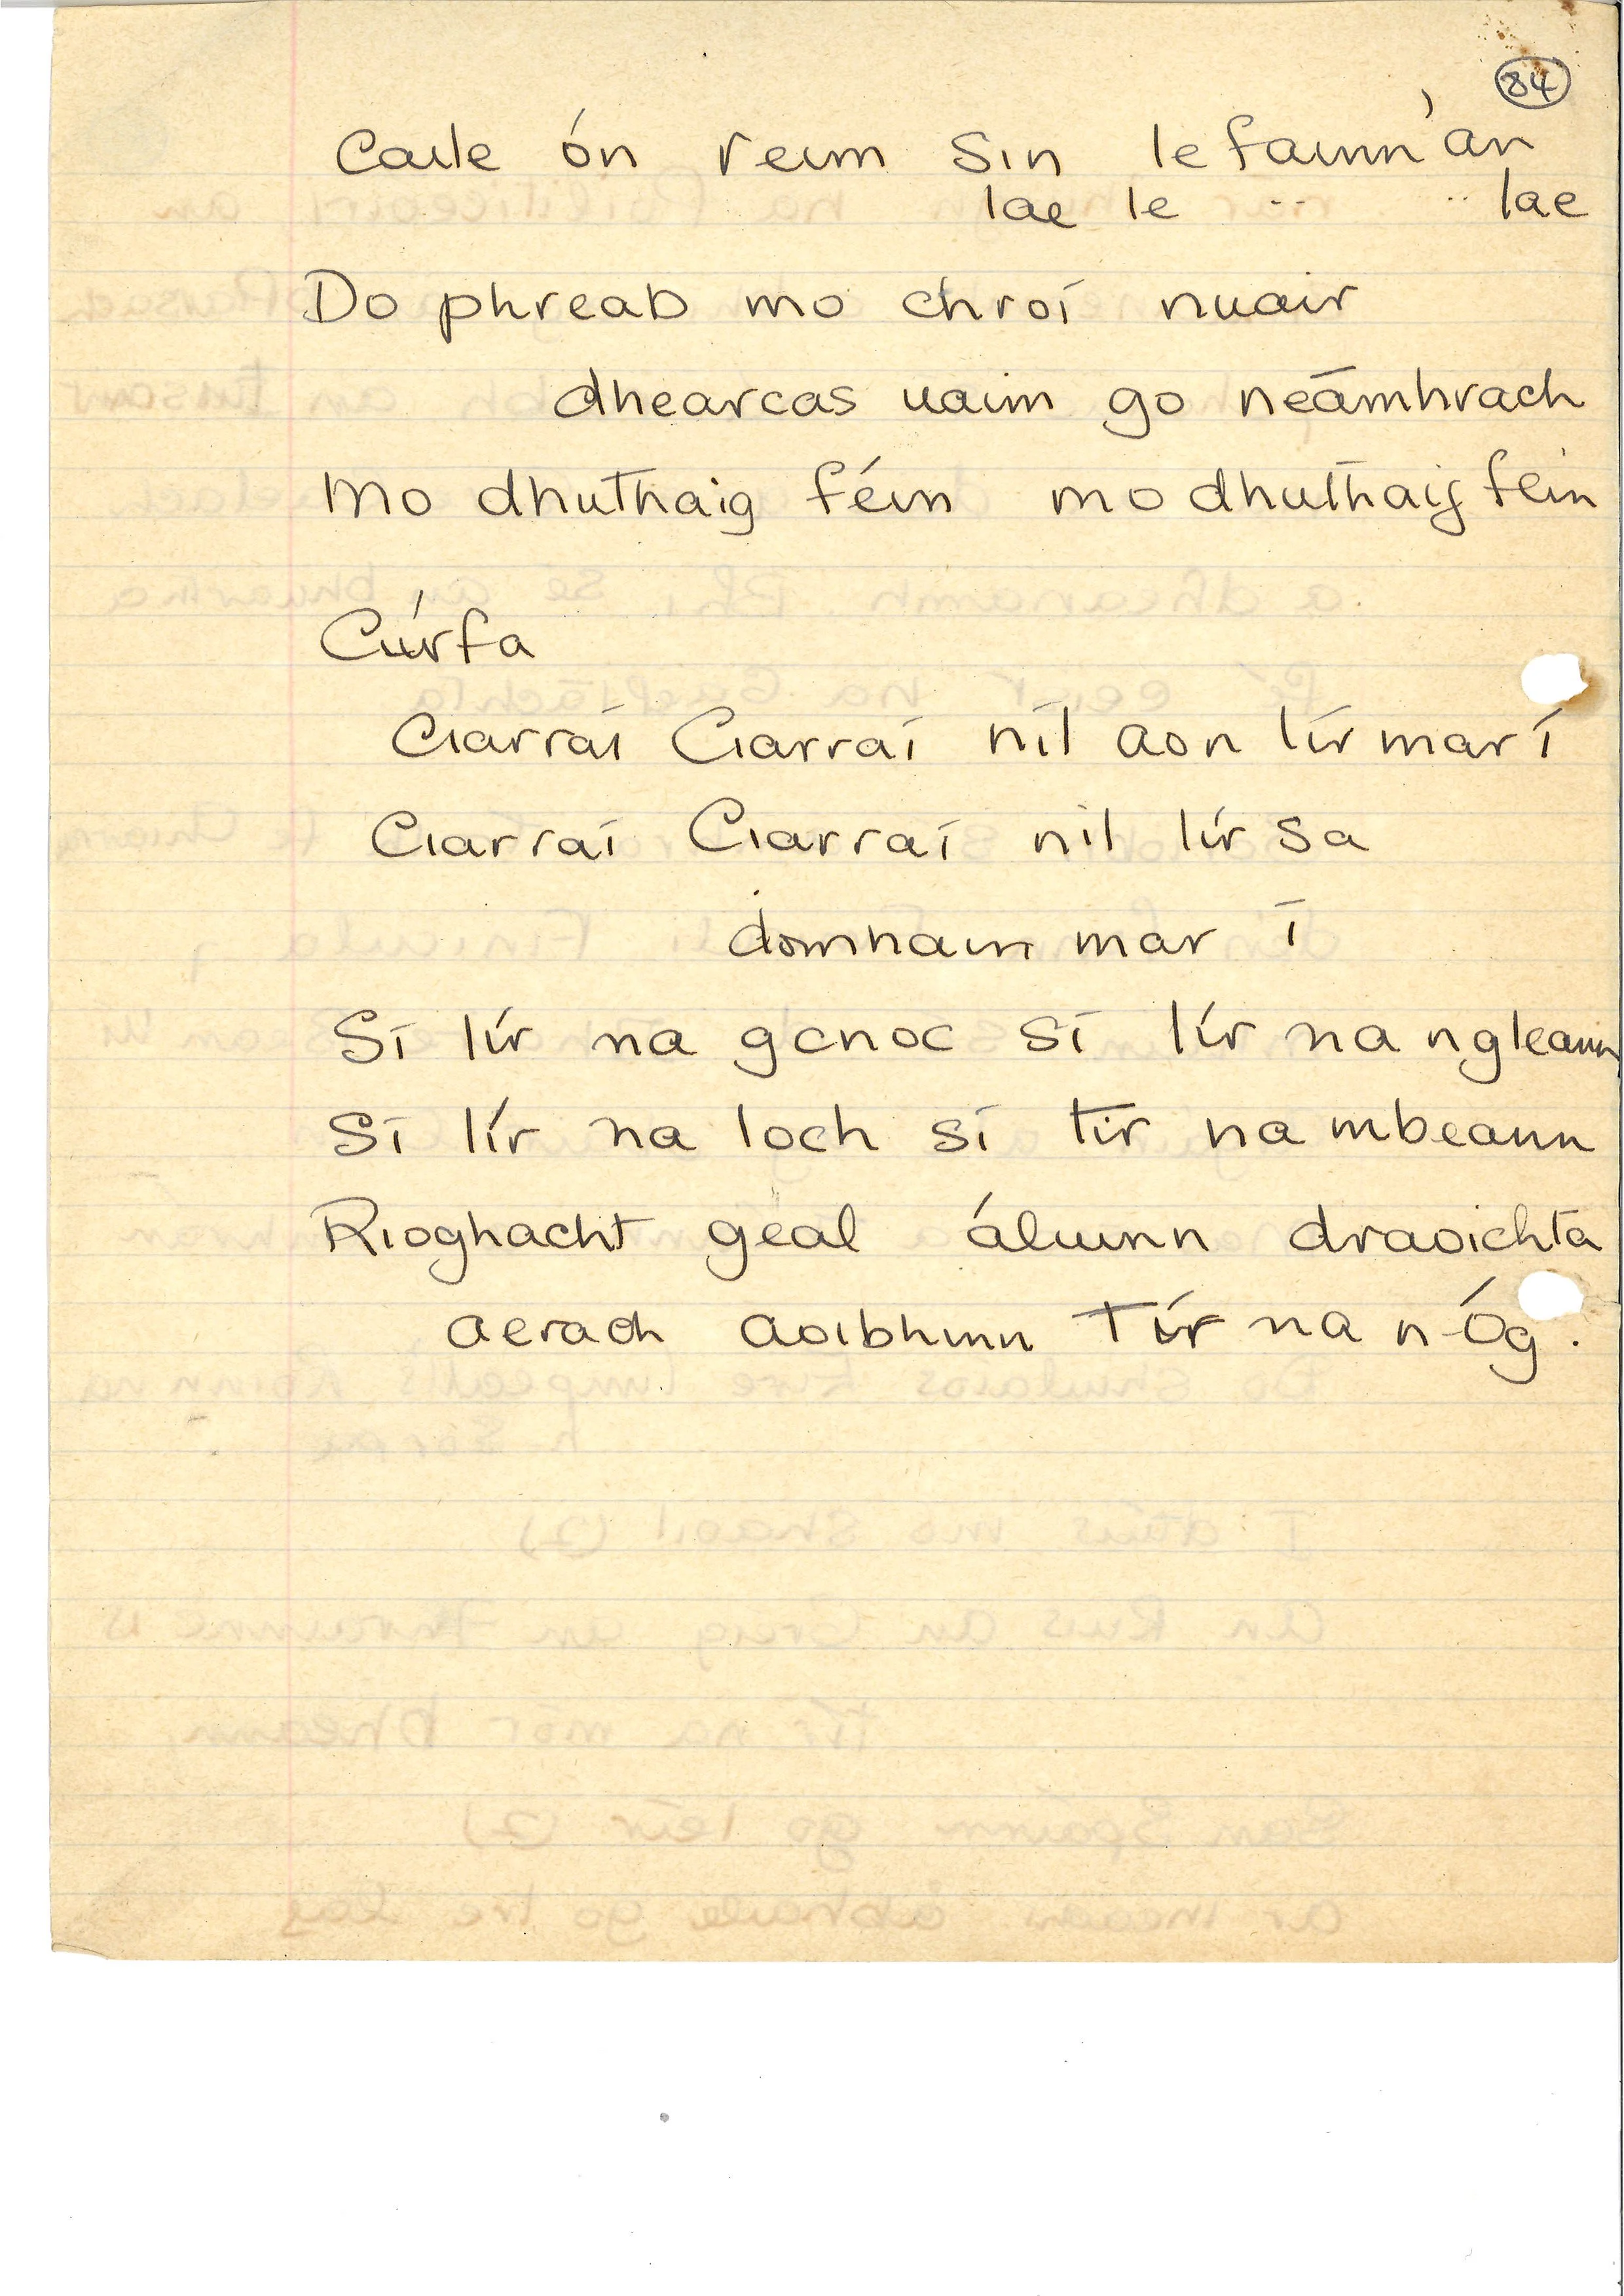 84
Caile ón reim sin le fainn an
lae le .. .. lae
Do phreab mo chroí nuair
dhearcas uaim go neámhrach
Mo dhuthaig féin mo dhuthaig féin
Cúrfa
Ciarraí Ciarraí níl aon tír mar í
Ciarraí Ciarraí nil tír sa
domhain mar í
Sí tír na gcnoc sí tír na ngleann
Sí tír na loch sí tír na mbeann
Rioghacht geal áluinn draoichta
aerach aoibhinn Tír na n-Óg.